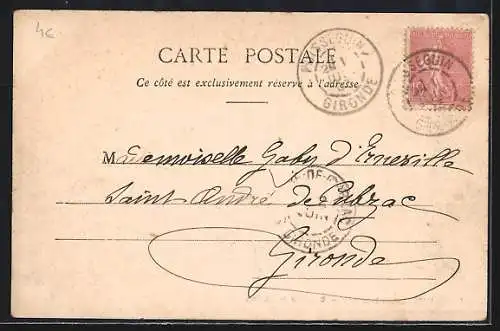 4€
CARTE POSTALE
Ce côté est exclusivement réservé à l'adresse
GIRONDE
Mademoiselle Gaby d'Erneville
Saint André de Cubzac
GIRONDE
Gironde